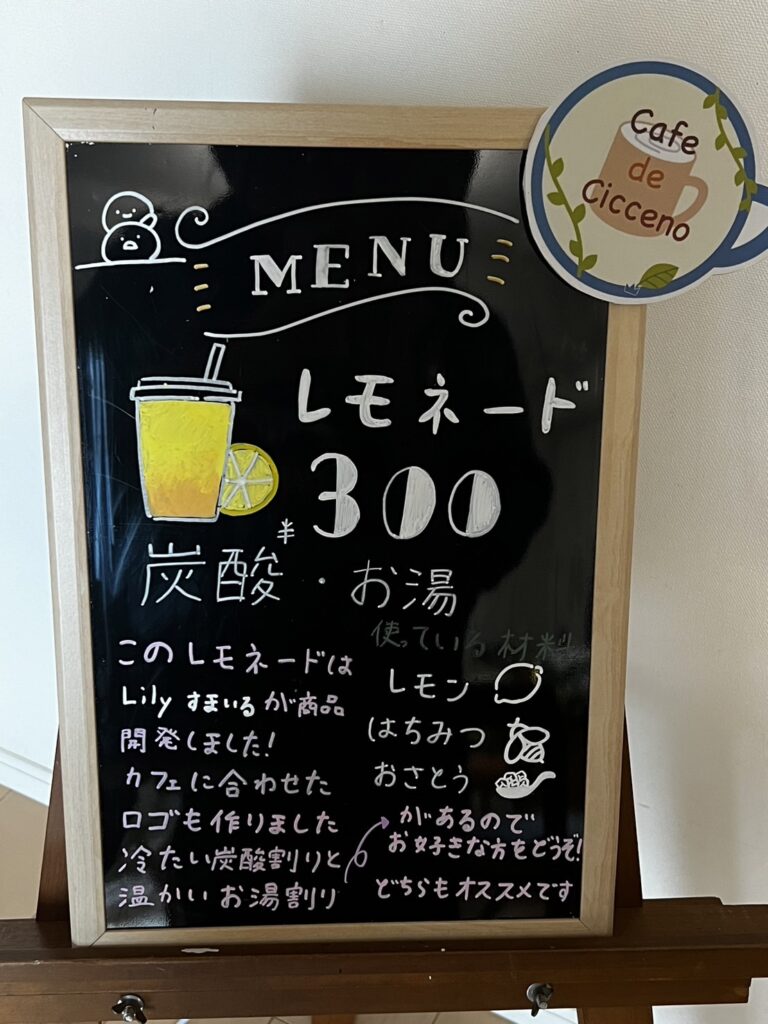 Cafe
de
Cicceno
MENU
レモネード
¥300
炭酸・お湯
このレモネードは
Lily すまいるが商品
開発しました!
カフェに合わせた
ロゴも作りました
冷たい炭酸割りと
温かいお湯割り
使っている材料
レモン
はちみつ
おさとう
があるので
お好きな方をどうぞ!
どちらもオススメです